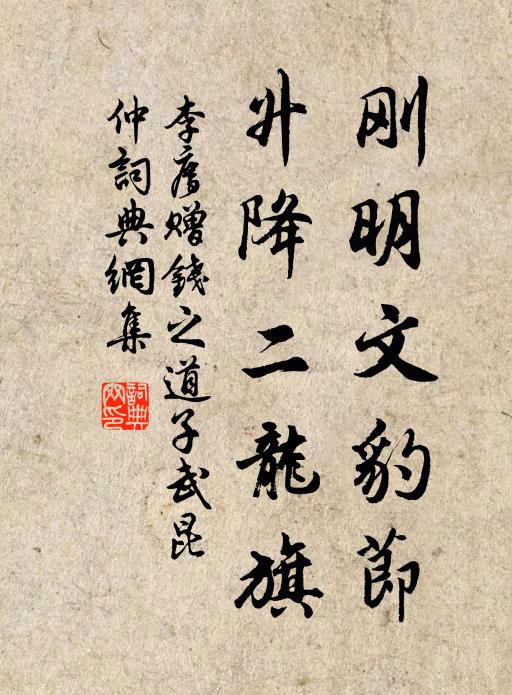 刚明文豹節
升降二龍旗
李廌贈錢之道子武昆
仲詞典網集
詞典
网印